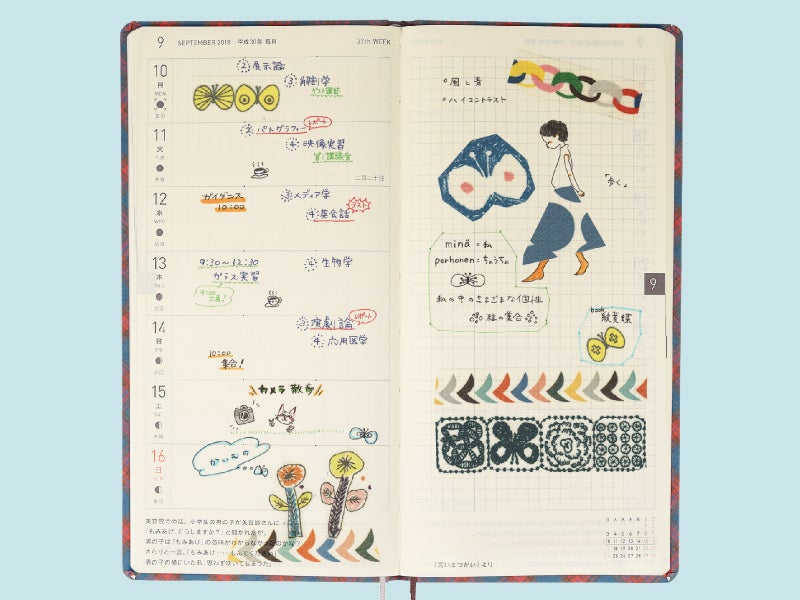 9 SEPTEMBER 2018 平成30年 長月 37th WEEK
10
月
MON
② 展示論
③ 解剖学
ゲスト講師
11
火
TUE
② パトグラフィー レポート
④ 映像実習
二百二十日
12
水
WED
ガイダンス
10:00
③ メディア学
④ 英会話 テスト
13
木
THU
9:30〜12:30
ガラス実習
④ 生物学
14
金
FRI
③ 演劇論 レポート
④ 応用医学
10:00
集合!
15
土
SAT
カメラ散歩
16
日
SUN
美容院での話。小学生の男の子が美容師さんに
「もみあげ、どうしますか?」と聞かれたが、
男の子は「もみあげ」の意味がわからなかったのかな?
さらりと一言。「もみあげ
男の子の横にいたわたし、思わず吹いてしまった。
ハイコントラスト
「歩く」
minä = 私
perhonen = ちょうちょ
私の中のさまざまな個性
粒の集合
book
9
「言いまつがい」より